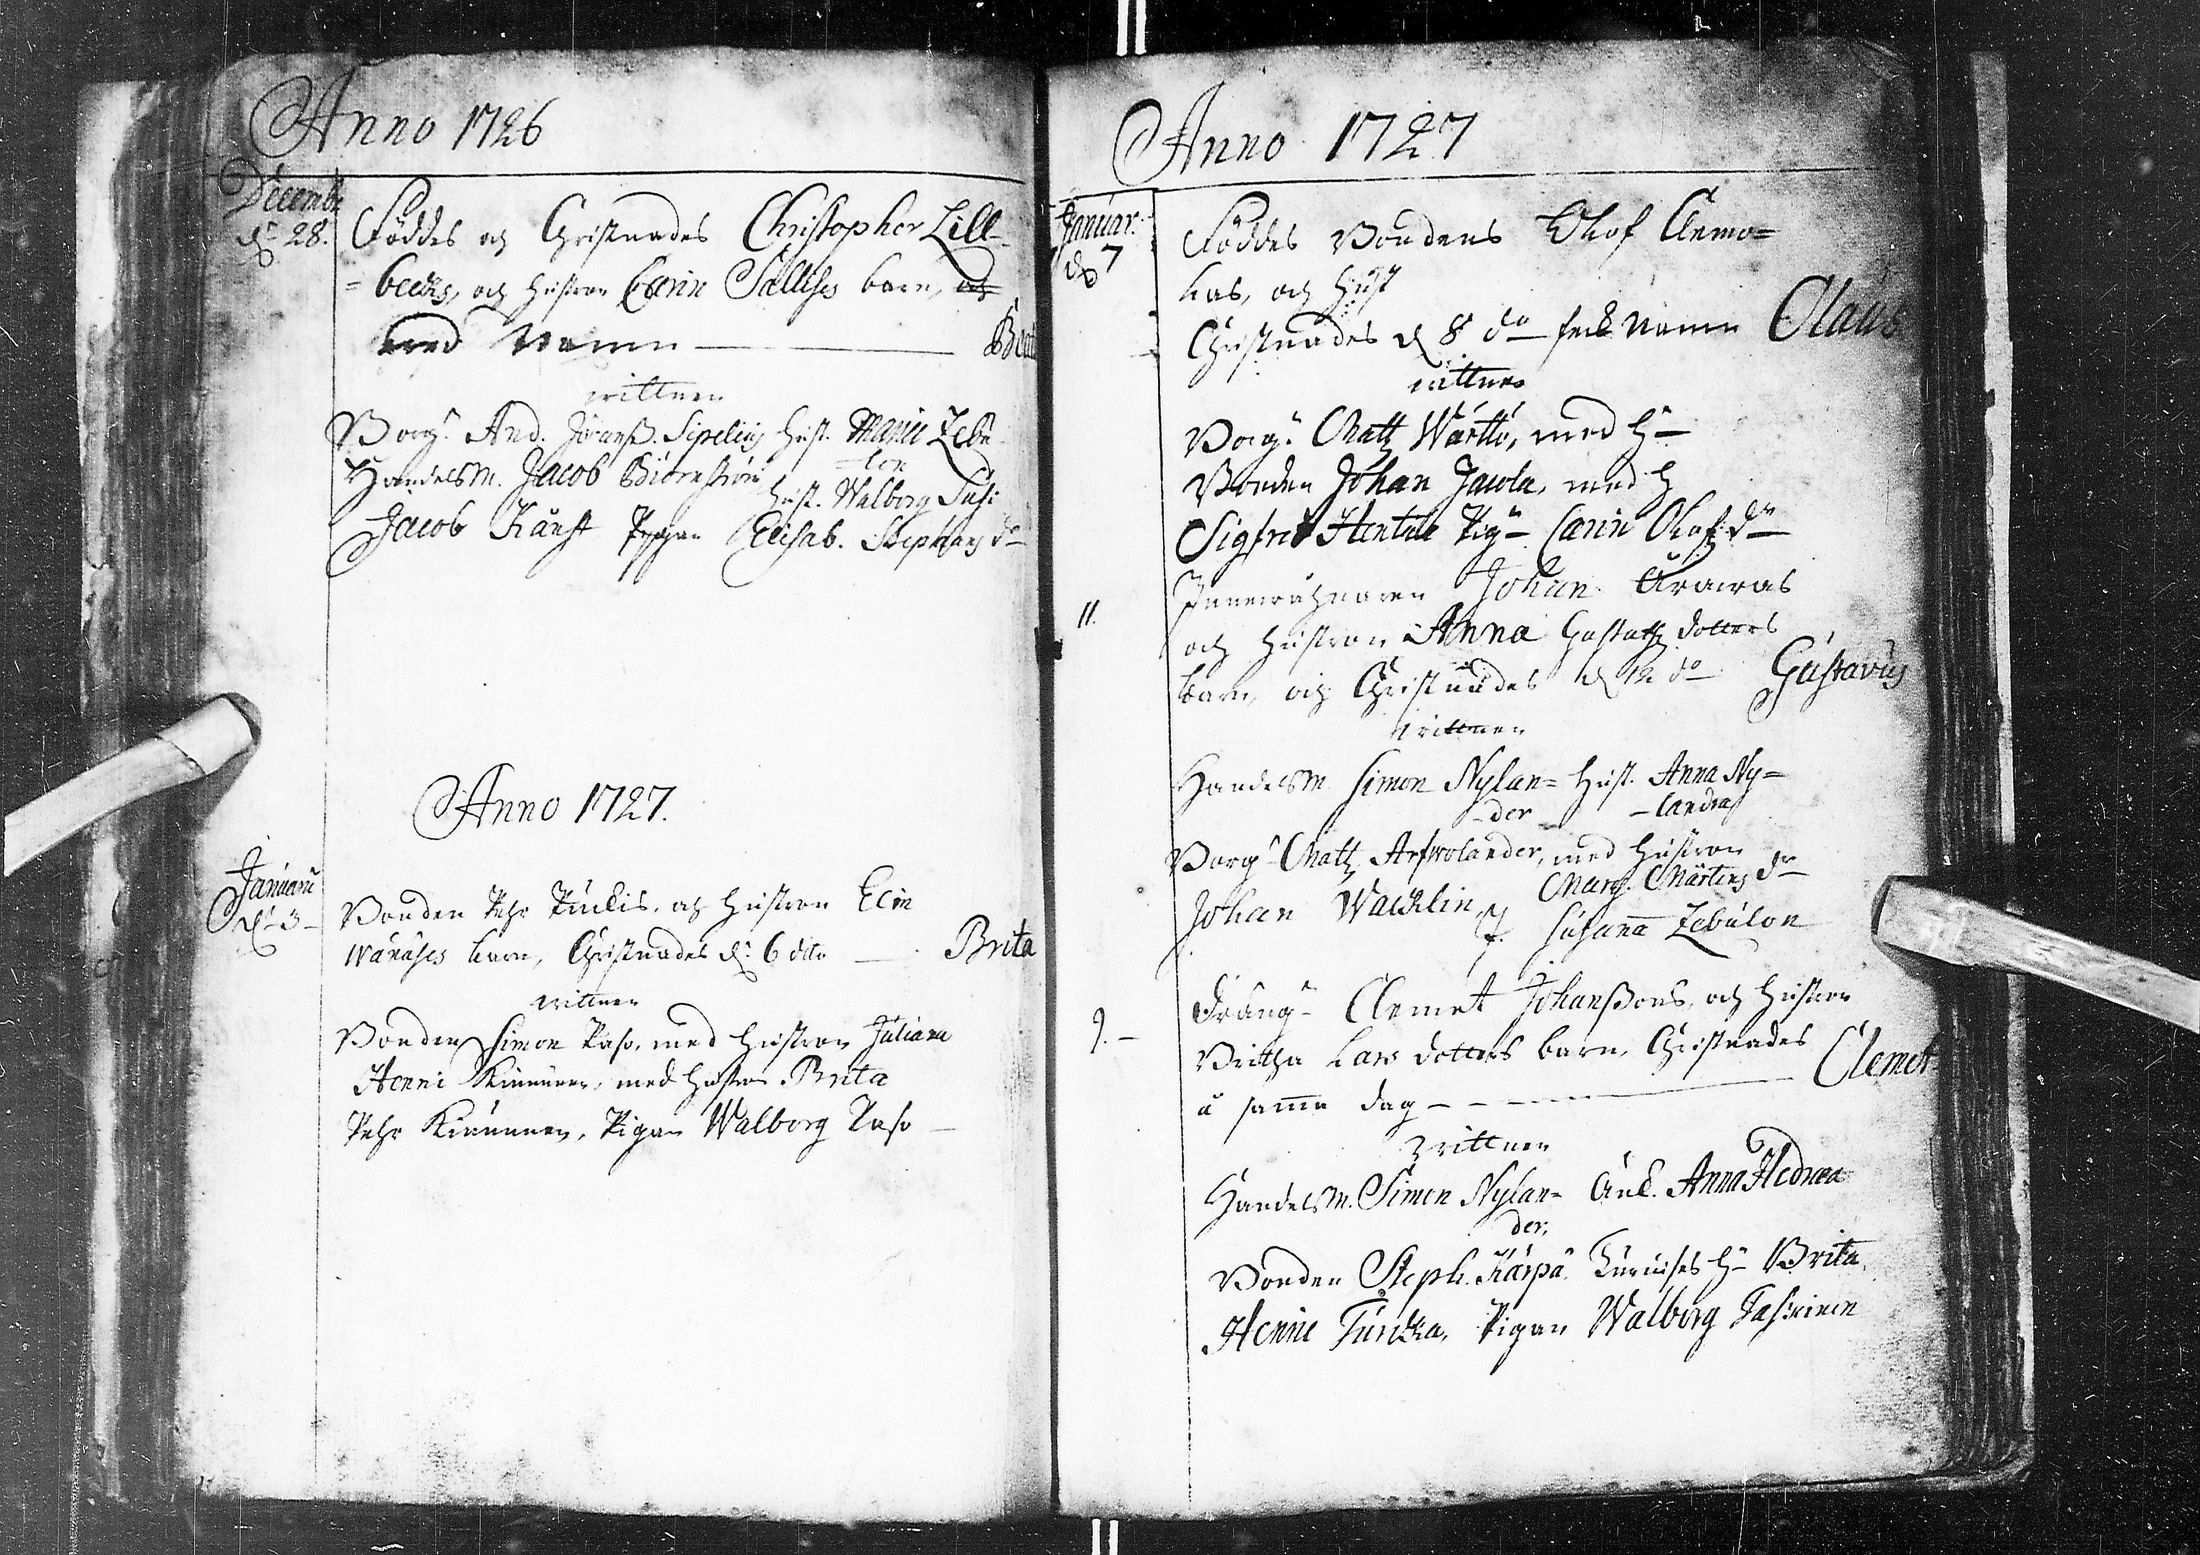 Anno 1726
Decembr
dn 28.
Föddes och Christnades Christopher Lill-
=becks, och hustron Carin Sallises barn, och
med Namn —
wittnen
Borg. And. Jöranss. Sipelius hust. Maria Zebu-
lon
Handelsm. Jacob Biörnström
hust. Walborg
Jacob Pigan Elisab. Stephans dr
Anno 1727.
Januarii
d. 3
Bonden Pehr Pinkis, och hustron Elin
barn, Christnades d. 6 dito — Brita
wittnen
Bonden Simon Paso, med hustron Juliana
Henric Kinnunen, med hustro Brita
Pehr Kinnunen, Pigan Walborg Paso
Anno 1727
Januar.
d. 7
Föddes Bondens Olof Clemo=
las, och hust
Christnades d 8 do fick Namn Claus
wittnen
Borg. Matz Wärttö, med h
Bonden Johan Jacola, med h
Sigfred Hentula Pig Carin Olofz dr
11.
Innewåhnaren Johan
och hustron Anna Gustafz dotters
barn, och Christnades d 12 do Gustavus
wittnen
Handelsm Simon Nylan= hust. Anna Ny=
-der -landra
Borg Matz Arfwolander, med hustron
Marg. Mårtens dr
Johan Wacklin, J. Susana Zebulon
9.
Dräng Clemet Johanssons, och hustron
Britha Lars dotters barn, Christnades
å samma dag — Clemet
wittnen
Handelsm. Simon Nylan= Enk. Anna Hedræa
der,
Bonden Steph. Kärpä, h Brita
Henric Turcka, Pigan Walborg Taskinen